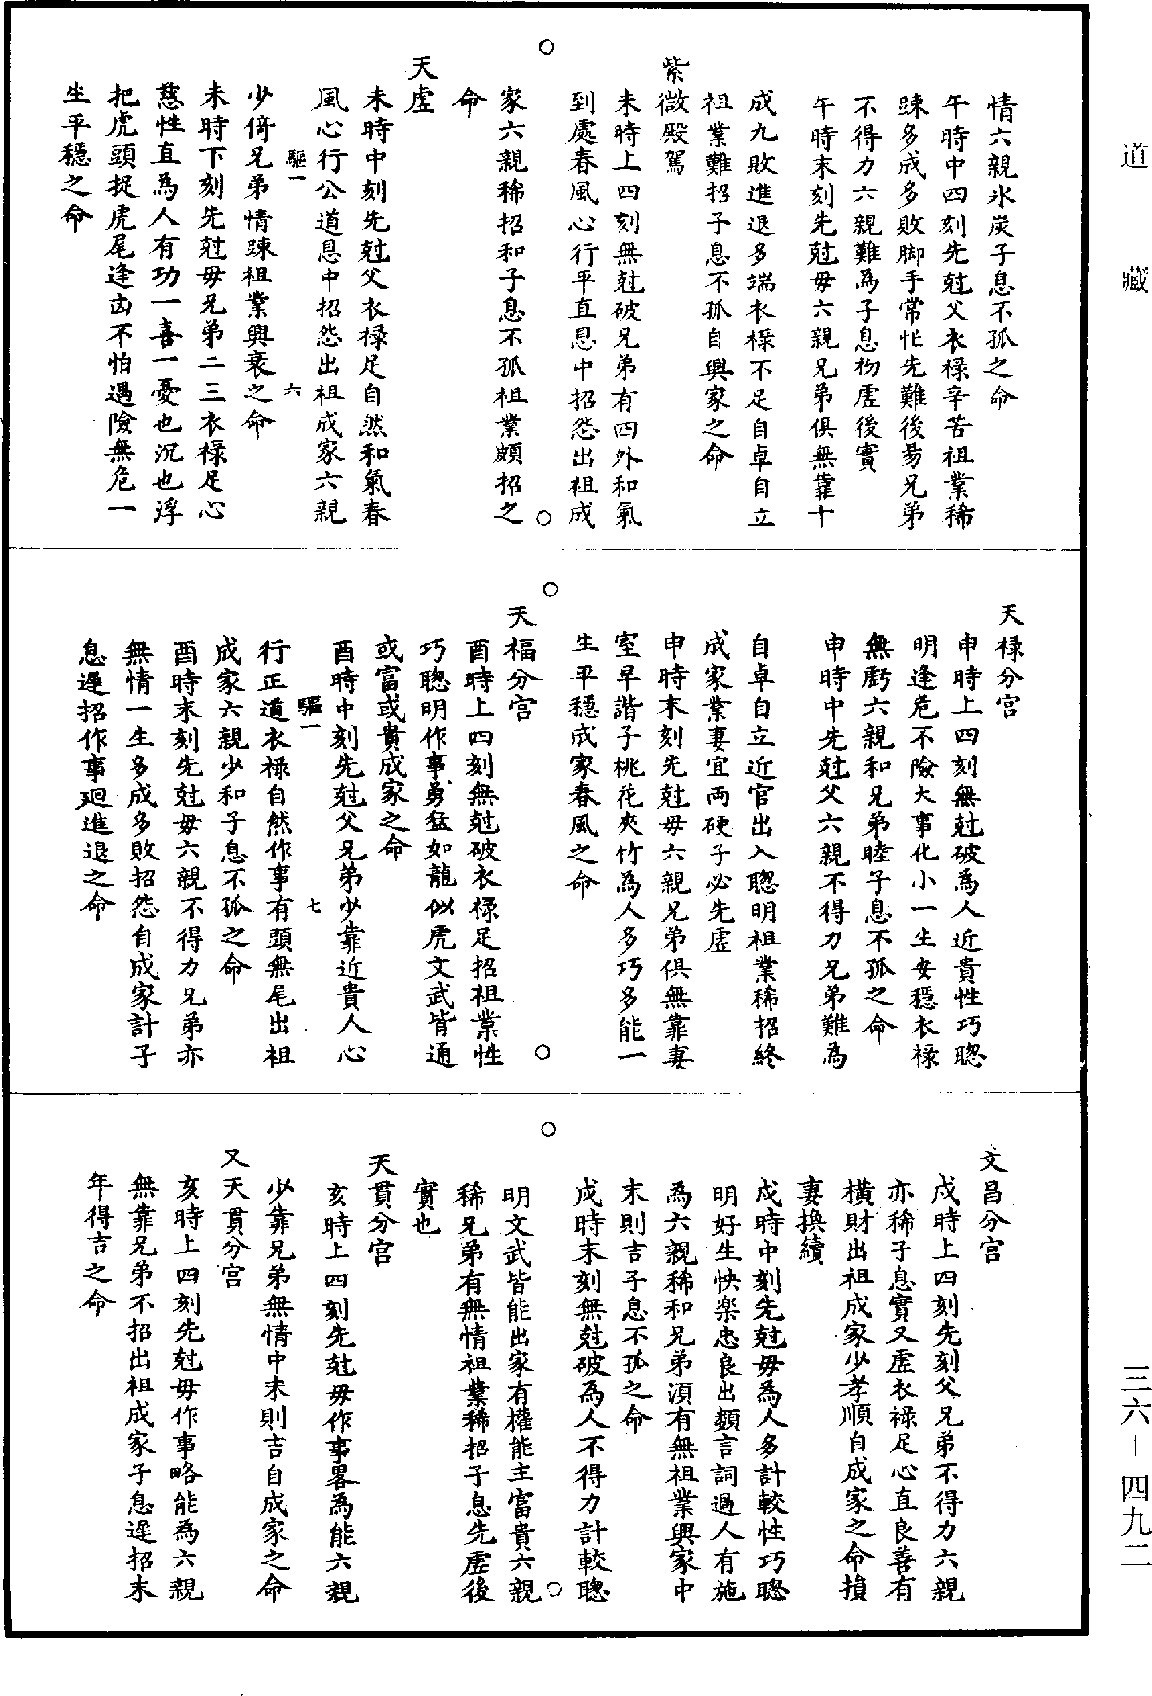 道藏
情六親氷炭子息不孤之命
午時中四刻先尅父衣祿辛苦祖業稀
踈多成多敗脚手常忙先難後易兄弟
不得力六親難為子息初虛後實
午時末刻先尅母六親兄弟俱無靠十
成九敗進退多端衣祿不足自卓自立
祖業難招子息不孤自興家之命
紫微殿駕
未時上四刻無尅破兄弟有四外和氣
到處春風心行平直恩中招怨出祖成
家六親稀招和子息不孤祖業頗招之
命
天虛
未時中刻先尅父衣祿足自然和氣春
風心行公道恩中招怨出祖成家六親
驅一 六
少倚兄弟情踈祖業興衰之命
未時下刻先尅母兄弟二三衣祿足心
慈性直為人有功一喜一憂也沉也浮
把虎頭捉虎尾逢凶不怕遇險無危一
生平穩之命
天祿分宮
申時上四刻無尅破為人近貴性巧聰
明逢危不險大事化小一生安穩衣祿
無虧六親和兄弟睦子息不孤之命
申時中先尅父六親不得力兄弟難為
自卓自立近官出入聰明祖業稀招終
成家業妻宜兩硬子必先虛
申時末刻先尅母六親兄弟俱無靠妻
室早諧子桃花夾竹為人多巧多能一
生平穩成家春風之命
天福分宮
酉時上四刻無尅破衣祿足招祖業性
巧聰明作事勇猛如龍似虎文武皆通
或富或貴成家之命
酉時中刻先尅父兄弟少靠近貴人心
驅一 七
行正道衣祿自然作事有頭無尾出祖
成家六親少和子息不孤之命
酉時末刻先尅母六親不得力兄弟亦
無情一生多成多敗招怨自成家計子
息遲招作事廻進退之命
文昌分宮
戌時上四刻先刻父兄弟不得力六親
亦稀子息實又虛衣祿足心直良善有
橫財出祖成家少孝順自成家之命損
妻換續
戌時中刻先尅母為人多計較性巧聰
明好生快樂忠良出類言詞過人有施
為六親稀和兄弟湏有無祖業興家中
末則吉子息不孤之命
戌時末刻無尅破為人不得力計較聰
明文武皆能出家有權能主富貴六親
稀兄弟有無情祖業稀招子息先虛後
實也
天貫分宮
亥時上四刻先尅母作事畧為能六親
少靠兄弟無情中末則吉自成家之命
又天貫分宮
亥時上四刻先尅母作事略能為六親
無靠兄弟不招出祖成家子息遲招末
年得吉之命
三六—四九二